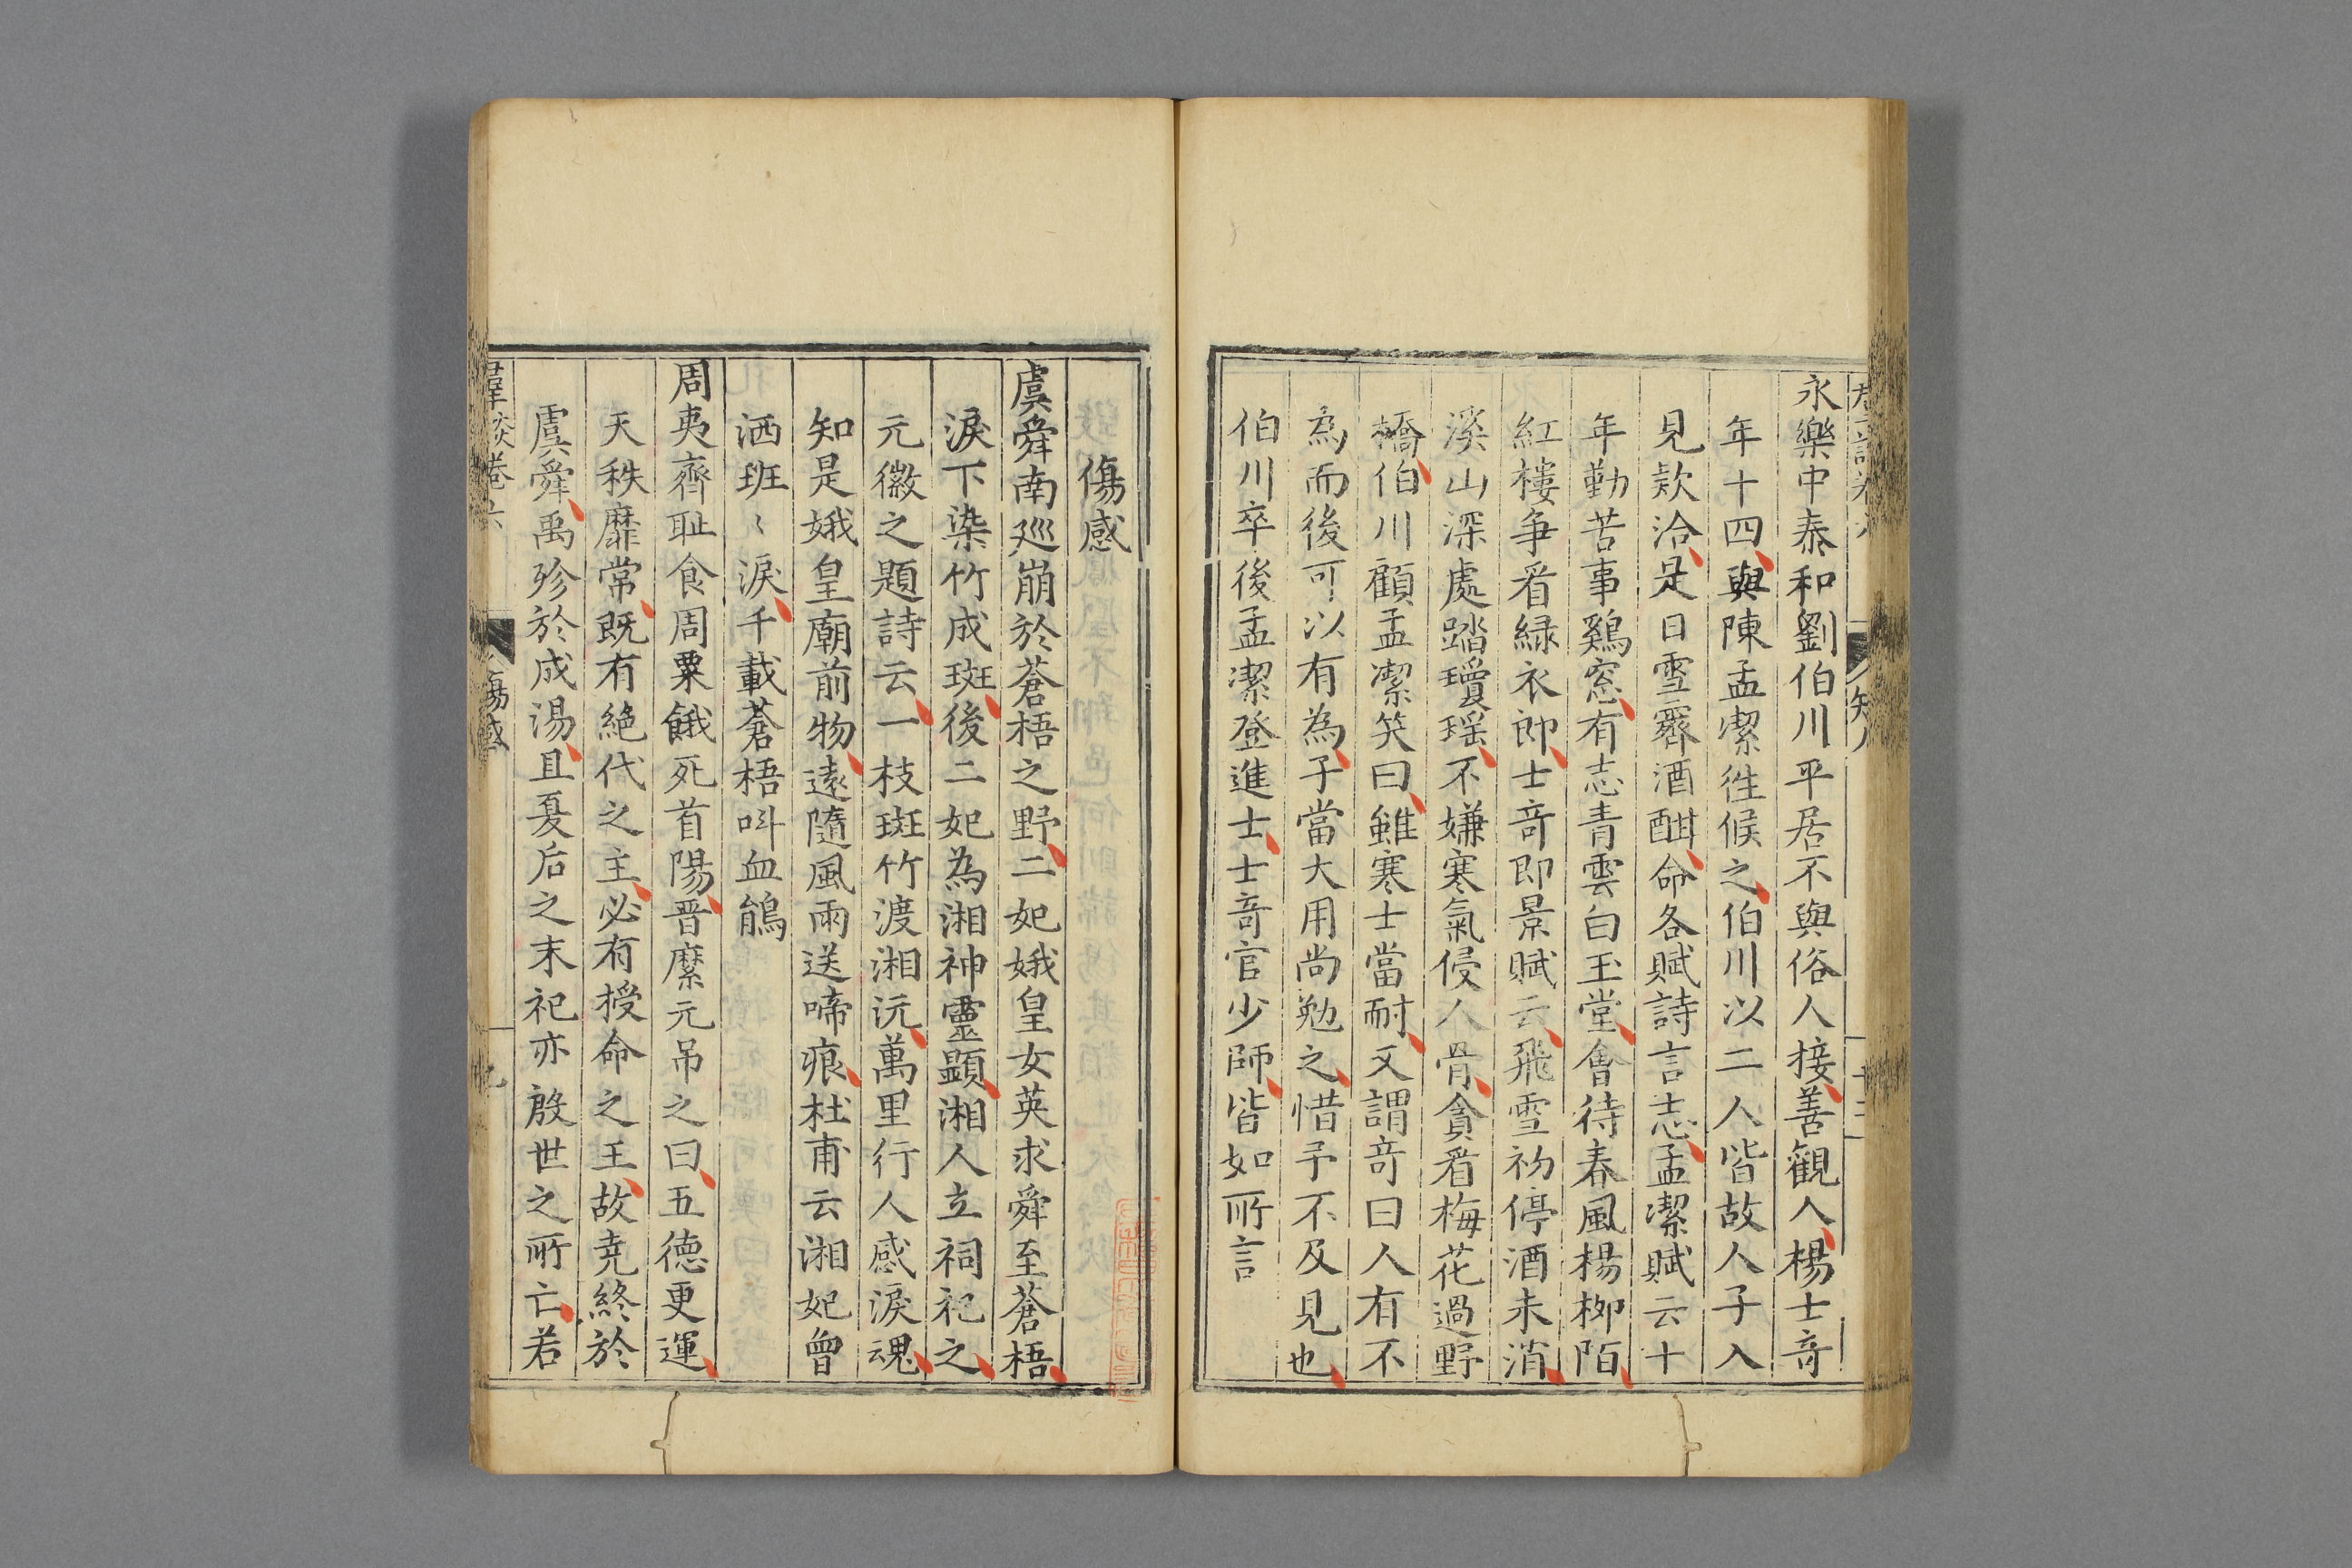 永樂中泰和劉伯川平居不與俗人接善觀人楊士奇
年十四與陳孟潔徃候之伯川以二人皆故人子入
見欵洽是日雪霽酒酣命各賦詩言志孟潔賦云十
年勤苦事鷄窓有志青雲白玉堂會待春風楊桞陌
紅樓爭看緑衣郎士竒即景賦云飛雪初停酒未消
溪山深處踏瓊瑶不嫌寒氣侵人骨貪看梅花過野
橋伯川顧孟潔笑曰雖寒士當耐又謂竒曰人有不
為而後可以有為子當大用尚勉之惜予不及見也
伯川卒後孟潔登進士士竒官少師皆如所言
傷感
虞舜南廵崩於蒼梧之野二妃娥皇女英求舜至蒼梧
淚下染竹成斑後二妃為湘神靈顯湘人立祠祀之
元徽之題詩云一枝斑竹渡湘沅萬里行人感淚魂
知是娥皇廟前物遠隨風雨送啼痕杜甫云湘妃曾
洒班〻淚千載蒼梧呌血鵑
周夷齊耻食周粟餓死首陽晋縻元吊之曰五德更運
天秩靡常既有絶代之主必有授命之王故尭終於
虞舜禹殄於成湯且夏后之末祀亦殷世之所亡若
羣談卷六
傷感
九